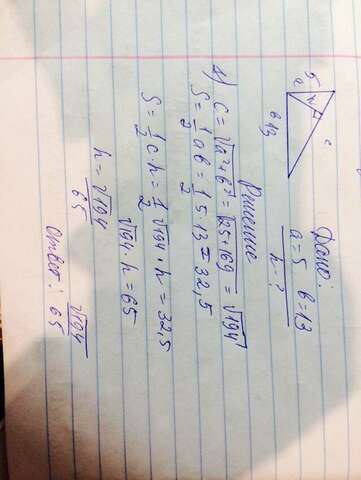 Дано:
a=5 b=13
h-?
5 h c
a
b 13
Решение
1) c=√a²+b² = √25+169 = √194
S=½ab=½5·13=32,5
S=½c·h=½√194·h=32,5
√194·h=65
h=√194/65
Ответ: √194/65